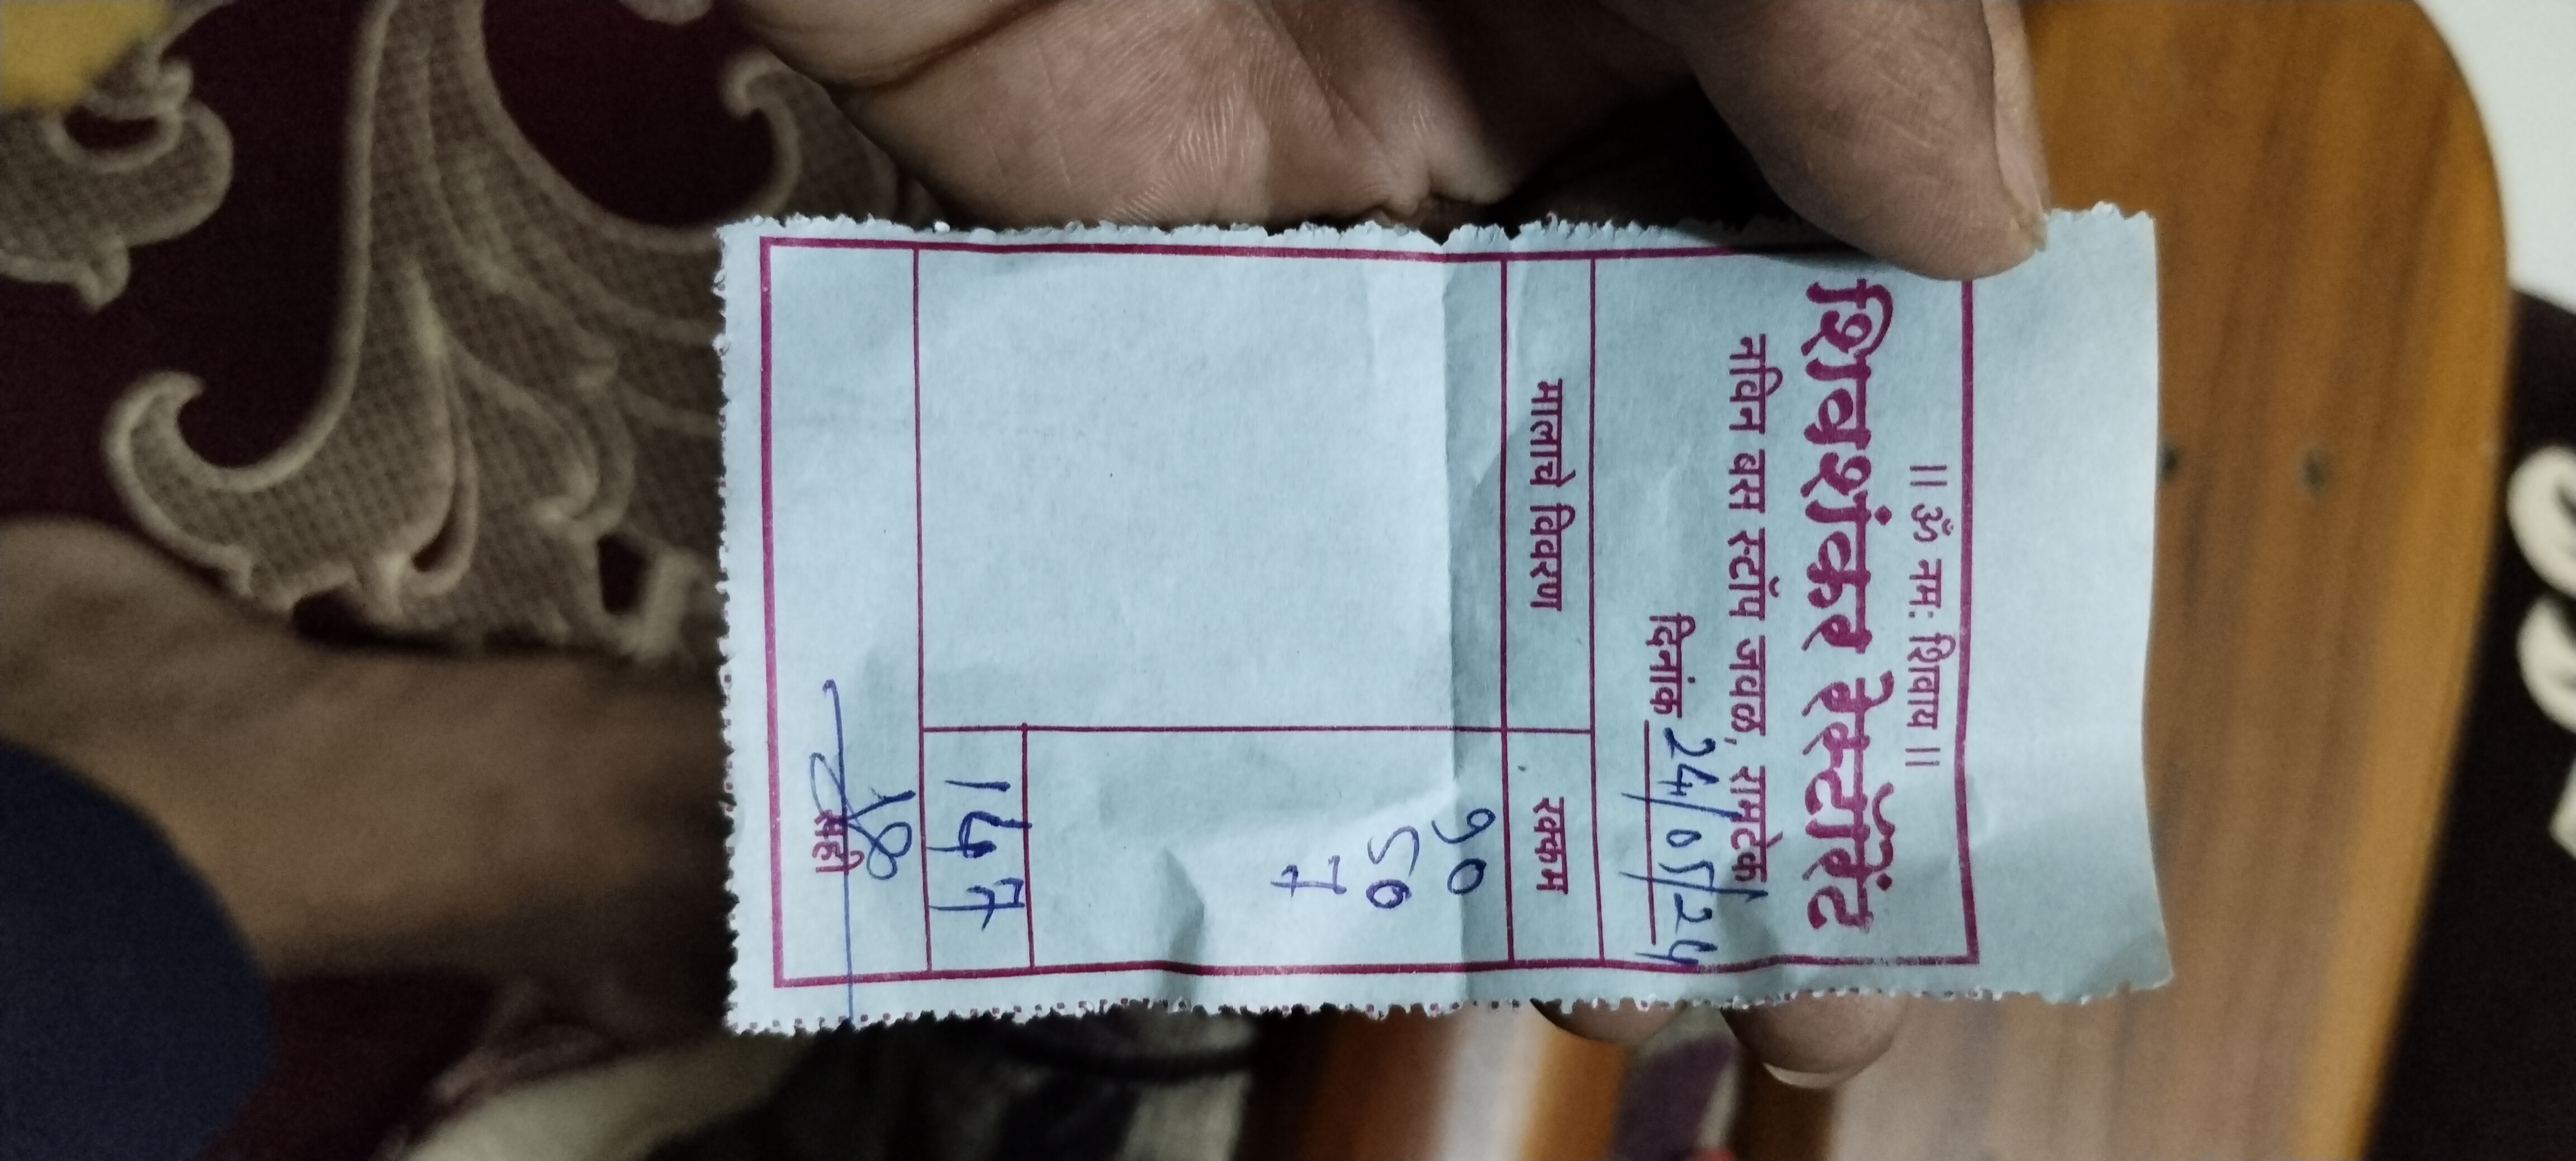 ॥ ॐ नमः शिवाय ॥
शिवशंकर रेस्टॉरेंट
नविन बस स्टॉप जवळ, रामटेक
दिनांक 24/05/24
मालाचे विवरण रक्कम
90
50
7
147
सही